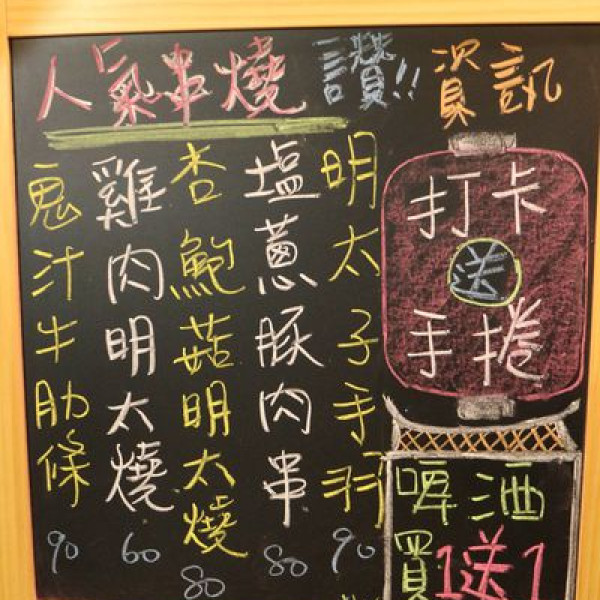 人氣串燒 讚!!
資訊
明太子手羽
90
塩蔥豚肉串
80
杏鮑菇明太燒
80
雞肉明太燒
60
鬼汁牛肋條
90
打卡
送
手捲
啤酒
買1送1